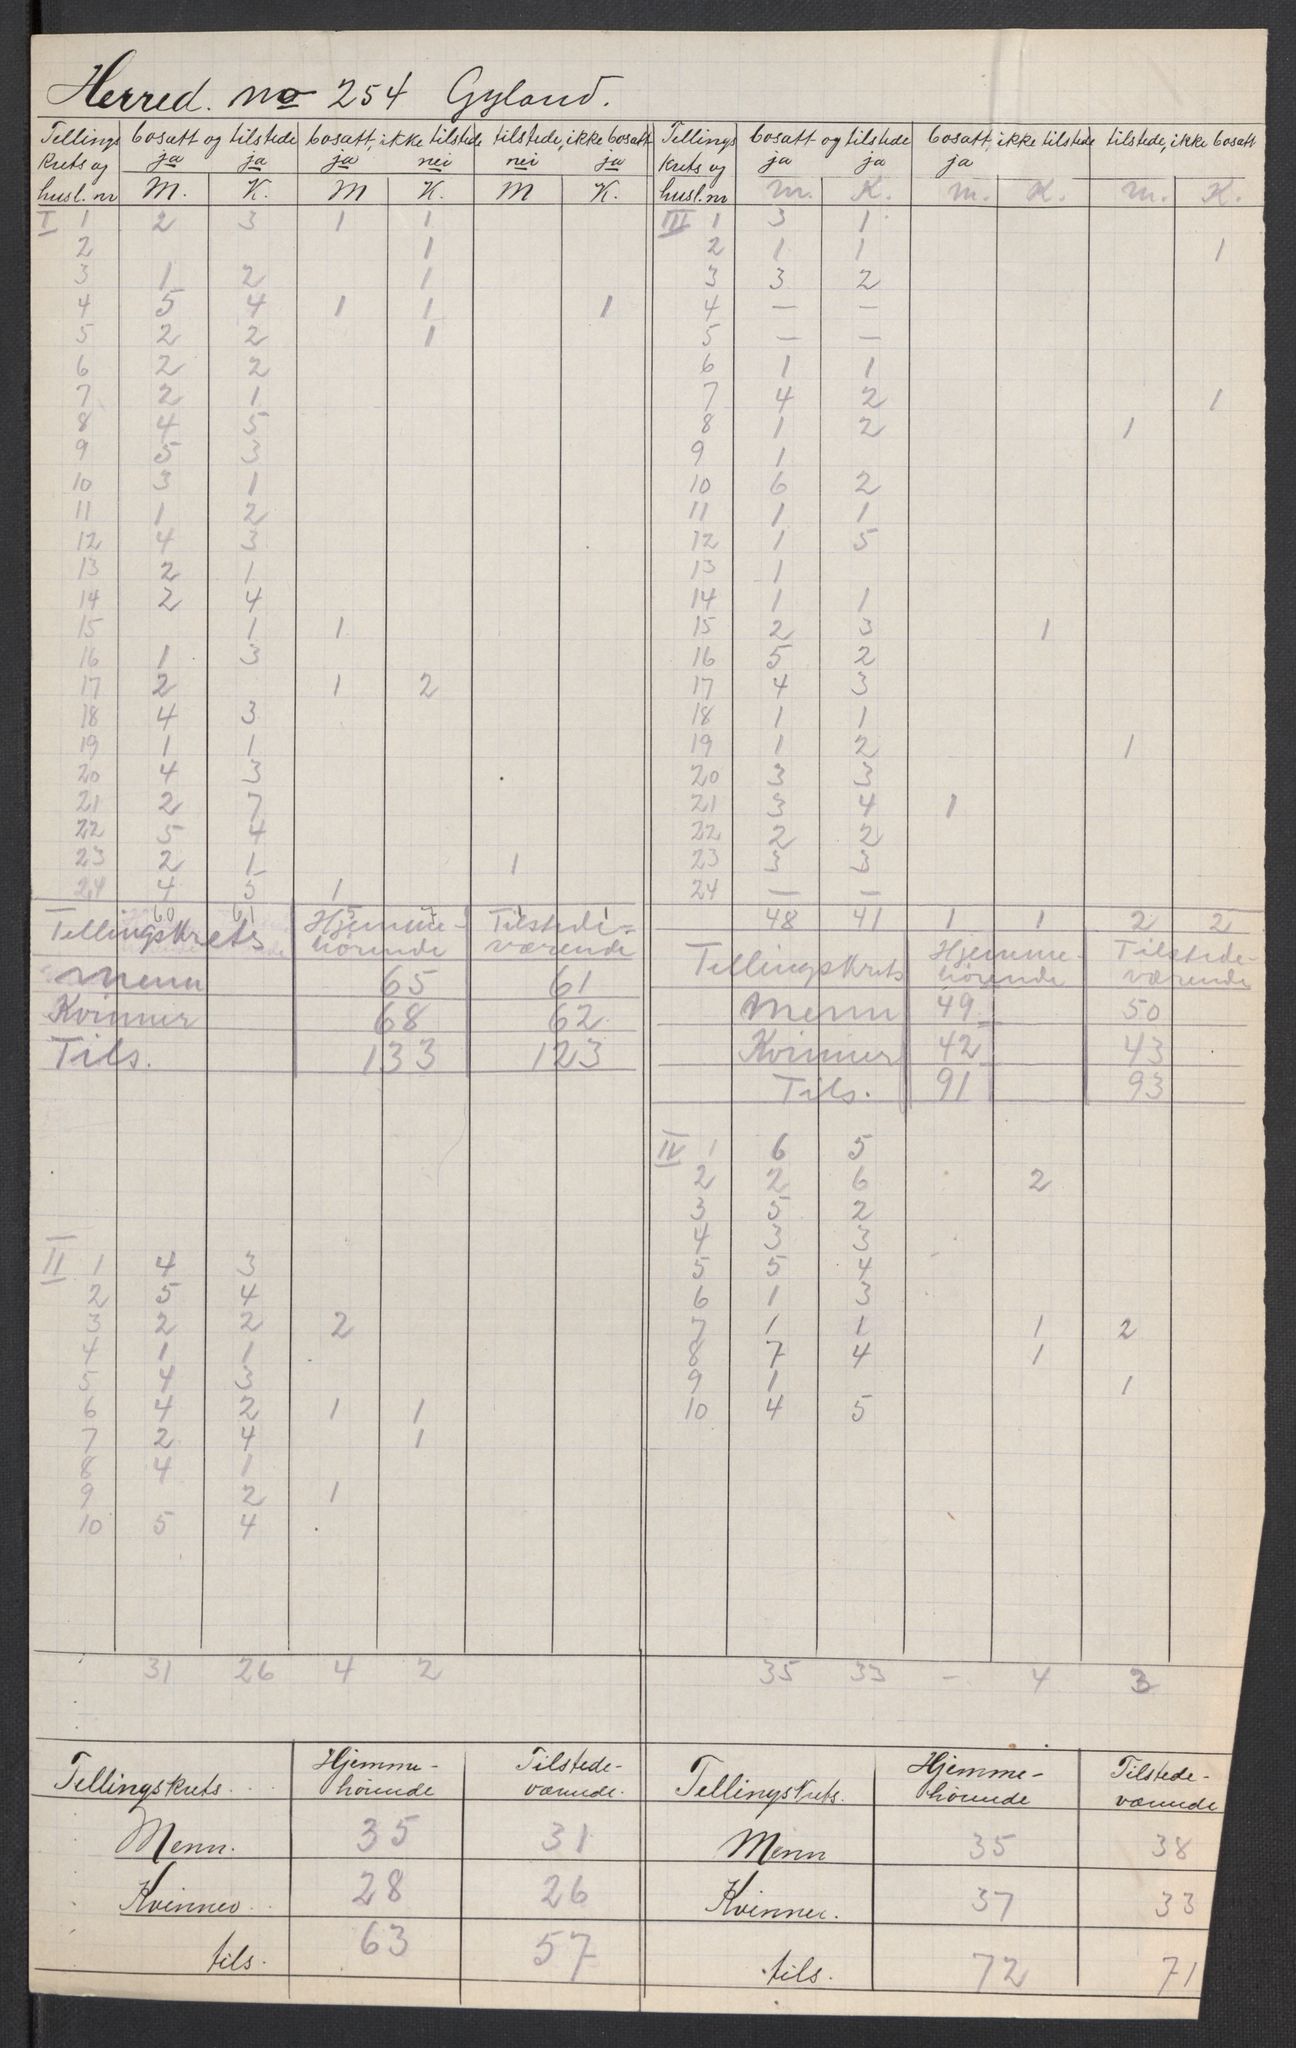 Herred. no 254 Gyland.
Tellings krets og husl. nr | bosatt og tilstede ja ja M. K. | bosatt, ikke tilstede ja nei M K. | tilstede, ikke bosatt nei ja M K.
I 1 2 3 1 1
2 1
3 1 2 1
4 5 4 1 1 1
5 2 2 1
6 2 2
7 2 1
8 4 5
9 5 3
10 3 1
11 1 2
12 4 3
13 2 1
14 2 4
15 1 1
16 1 3
17 2 1 2
18 4 3
19 1 1
20 4 3
21 2 7
22 5 4
23 2 1 1
24 4 5 1
60 61
Tellingskrets Hjemme-hörende Tilstede-værende
Menn 65 61
Kvinner 68 62
Tils. 133 123
II 1 4 3
2 5 4
3 2 2 2
4 1 1
5 4 3
6 4 2 1 1
7 2 4 1
8 4 1
9 2 1
10 5 4
31 26 4 2
Tellingskrets Hjemme-hörende Tilstede-værende.
Menn. 35 31
Kvinner 28 26
tils. 63 57
Tellings krets og husl. nr | bosatt og tilstede ja ja M. K. | bosatt, ikke tilstede ja M. K. | tilstede, ikke bosatt M. K.
III 1 3 1
2 1 1 1
3 3 2
4 — —
5 — —
6 1 1
7 4 2 1
8 1 2 1
9 1
10 6 2
11 1 1
12 1 5
13 1
14 1 1
15 2 3 1
16 5 2
17 4 3
18 1 1
19 1 2 1
20 3 3
21 3 4 1
22 2 2
23 3 3
24 — —
48 41 1 1 2 2
Tellingskrets Hjemme-hörende Tilstede-værende
Menn 49 50
Kvinner 42 43
Tils. 91 93
IV 1 6 5
2 2 6 2
3 5 2
4 3 3
5 5 4
6 1 3
7 1 1 1 2
8 7 4 1
9 1 1
10 4 5
35 33 – 4 3
Tellingskrets. Hjemme-hörende Tilstede-værende
Menn 35 38
Kvinner. 37 33
tils. 72 71